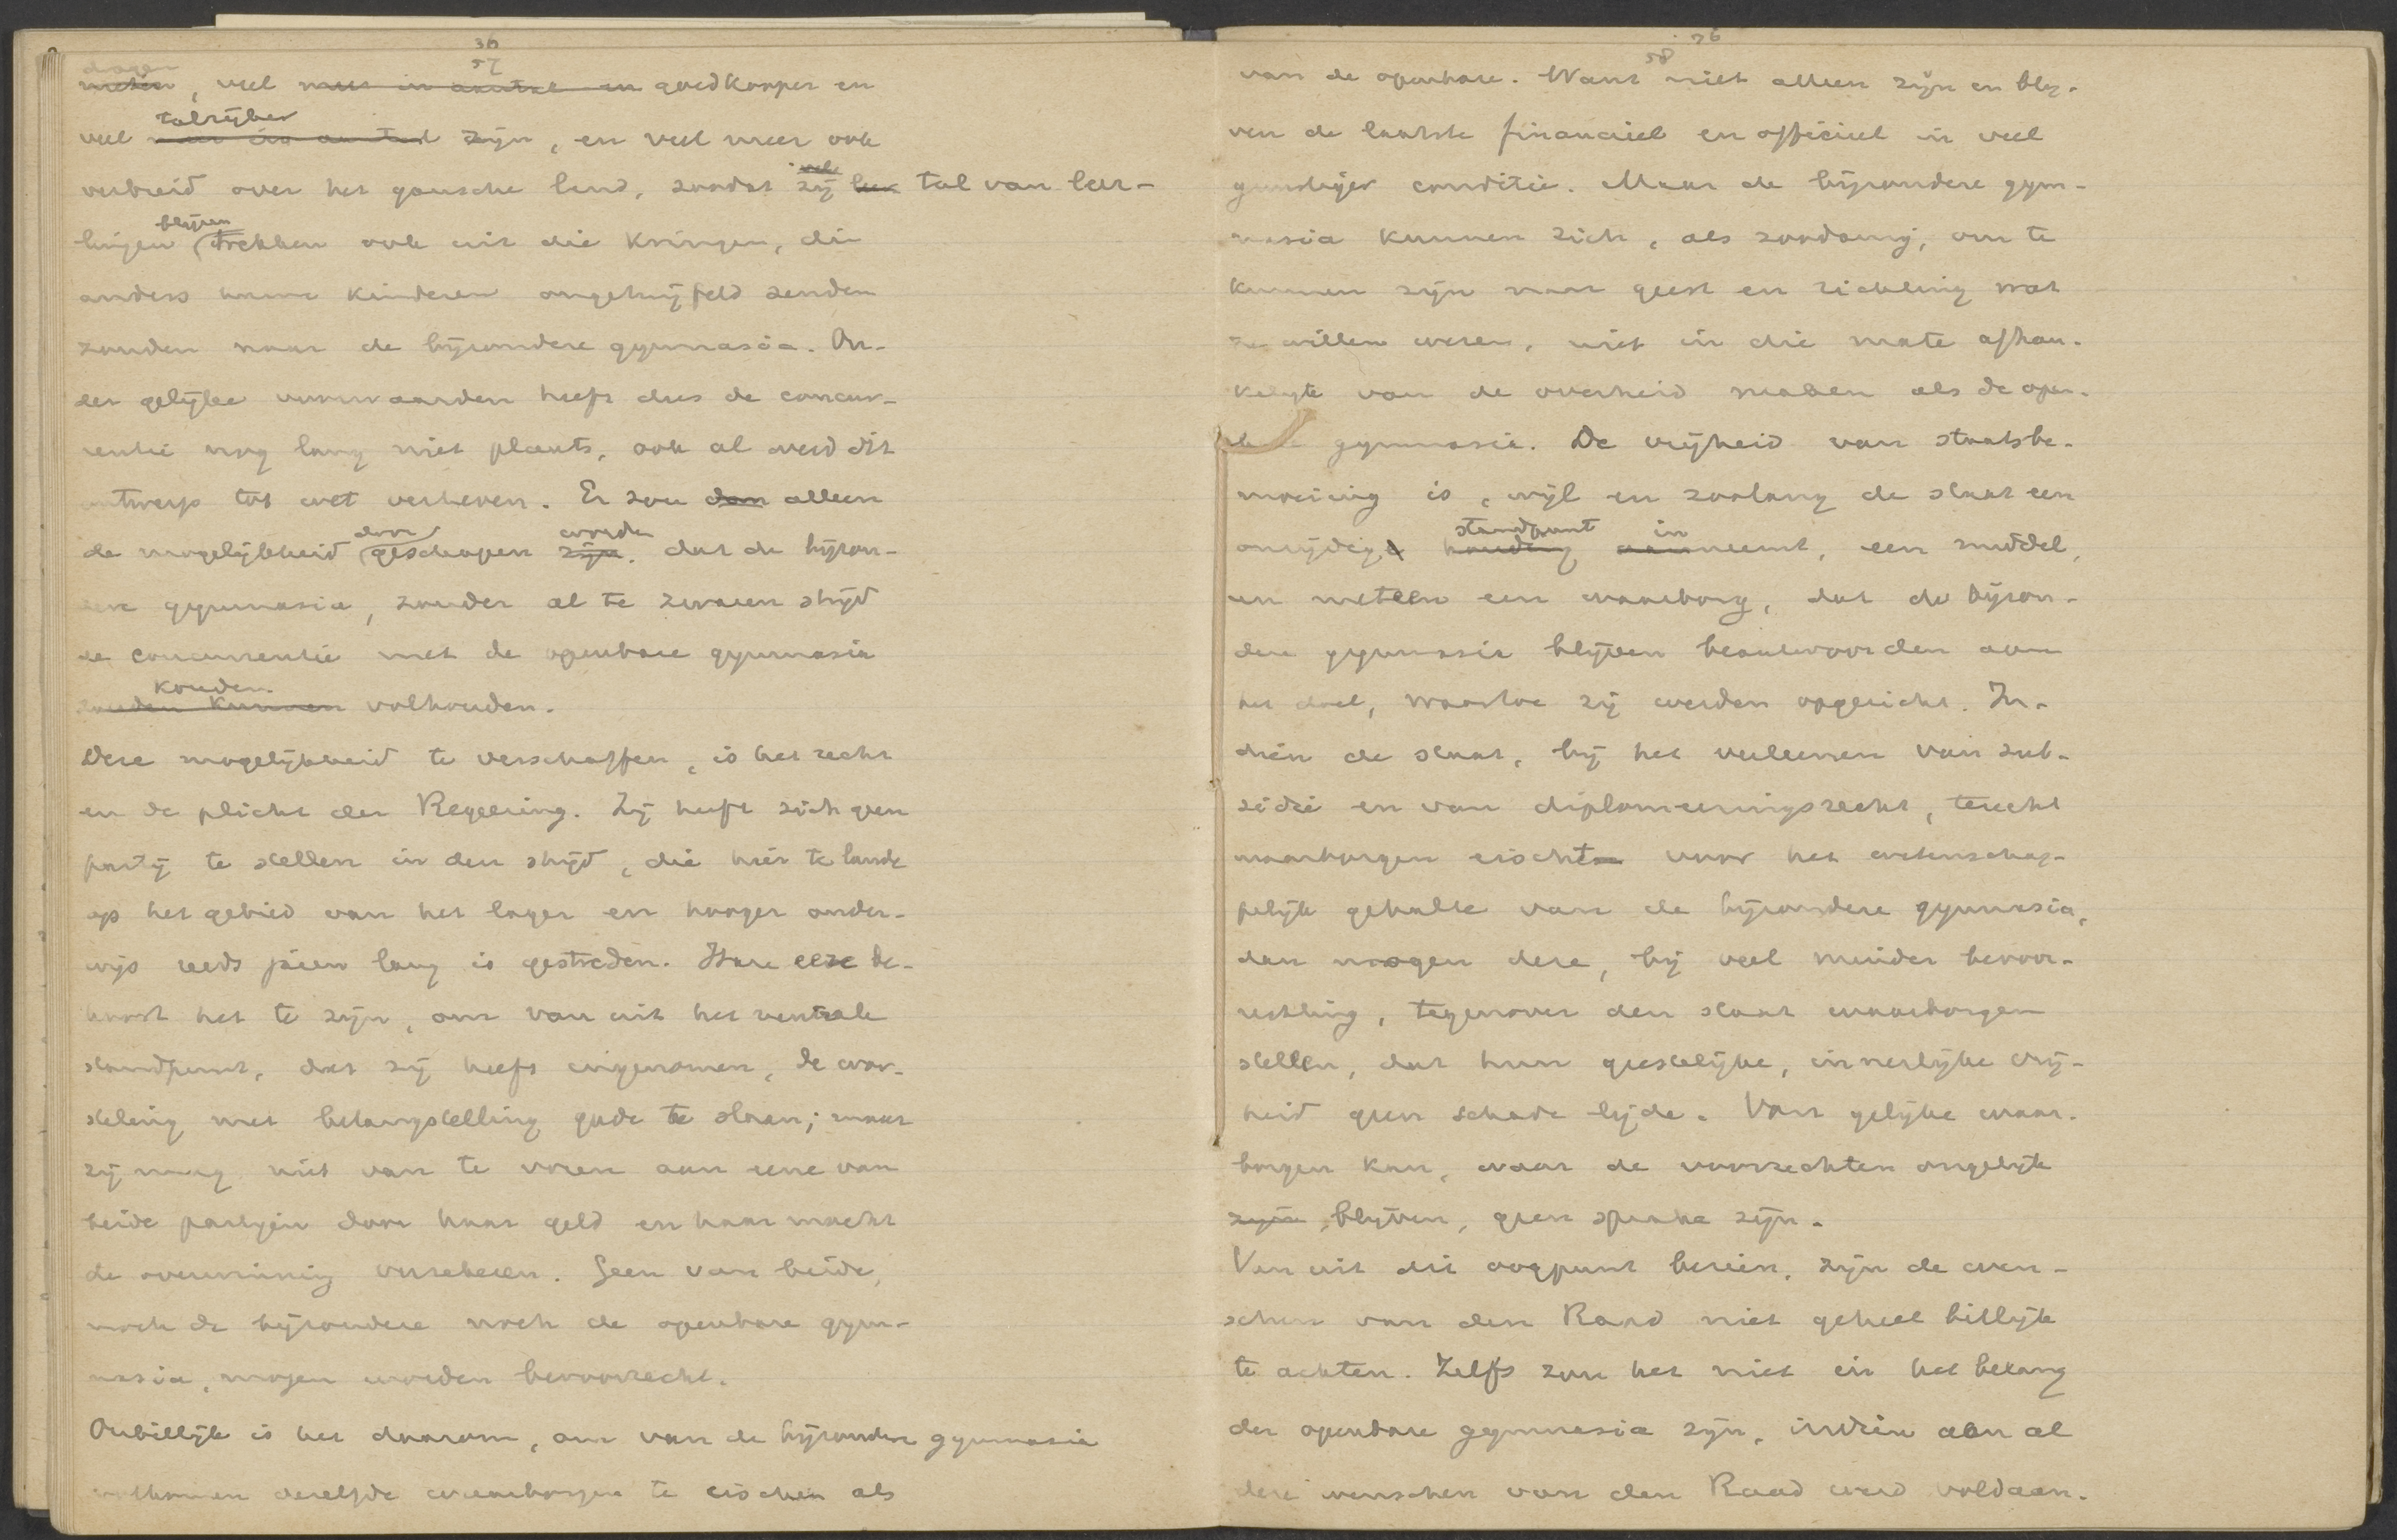 36
57
dagen
weten, veel meer in aantal en goedkooper en
talrijker
veel meer in aantal zijn, en veel meer ook
verbreid over het gansche land, zoodat zij vele tal van leer-
blijven
lingen trekken ook uit die kringen, die
anders hunne kinderen ongetwijfeld zenden
zouden naar de bijzondere gymnasia. On-
der gelijke voorwaarden heeft dus de concur-
rentie nog lang niet plaats, ook al werd dit
ontwerp tot wet verheven. Er zou dan alleen
door worden
de mogelijkheid geschapen zijn, dat de bijzon-
dere gymnasia, zonder al te zwaren strijd
de concurrentie met de openbare gymnasia
konden
zouden kunnen volhouden.
Deze mogelijkheid te verschaffen, is het recht
en de plicht der Regeering. Zij heeft zich geen
partij te stellen in den strijd, die hier te lande
op het gebied van het lager en hooger onder-
wijs reeds jaren lang is gestreden. Hare eere be-
hoort het te zijn, om van uit het neutrale
standpunt, dat zij heeft ingenomen, de wor-
steling met belangstelling gade te slaan; maar
zij mag niet van te voren aan eene van
beide partijen door haar geld en haar macht
de overwinning verzekeren. Geen van beide,
noch de bijzondere noch de openbare gym-
nasia, mogen worden bevoorrecht.
Onbillijk is het daarom, om van de bijzondere gymnasia
volkomen dezelfde waarborgen te eischen als
76
58
van de openbare. Want niet alleen zijn en blij-
ven de laatste financieel en officieel in veel
gunstiger conditie. Maar de bijzondere gym-
nasia kunnen zich, als zoodanig, om te
kunnen zijn naar geest en richting wat
ze willen wezen, niet in die mate afhan-
kelijk van de overheid maken als de open-
bare gymnasia. De vrijheid van staatsbe-
moeiing is, wijl en zoolang de staat een
standpunt in
onzijdige houding aanneemt, een middel,
en meteen een waarborg, dat de bijzon-
dere gymnasia blijven beantwoorden aan
het doel, waartoe zij werden opgericht. In-
dien de staat, bij het verleenen van sub-
sidie en van diplomeeringsrecht, terecht
waarborgen eischt voor het wetenschap-
pelijk gehalte van de bijzondere gymnasia,
dan mogen deze, bij veel minder bevoor-
rechting, tegenover den staat waarborgen
stellen, dat hun geestelijke, innerlijke vrij-
heid geen schade lijde. Van gelijke waar-
borgen kan, waar de voorrechten ongelijk
zijn, blijven, geen sprake zijn.
Van uit dit oogpunt bezien, zijn de wen-
schen van den Raad niet geheel billijk
te achten. Zelfs zou het niet in het belang
der openbare gymnasia zijn, indien aan al
deze wenschen van den Raad werd voldaan.